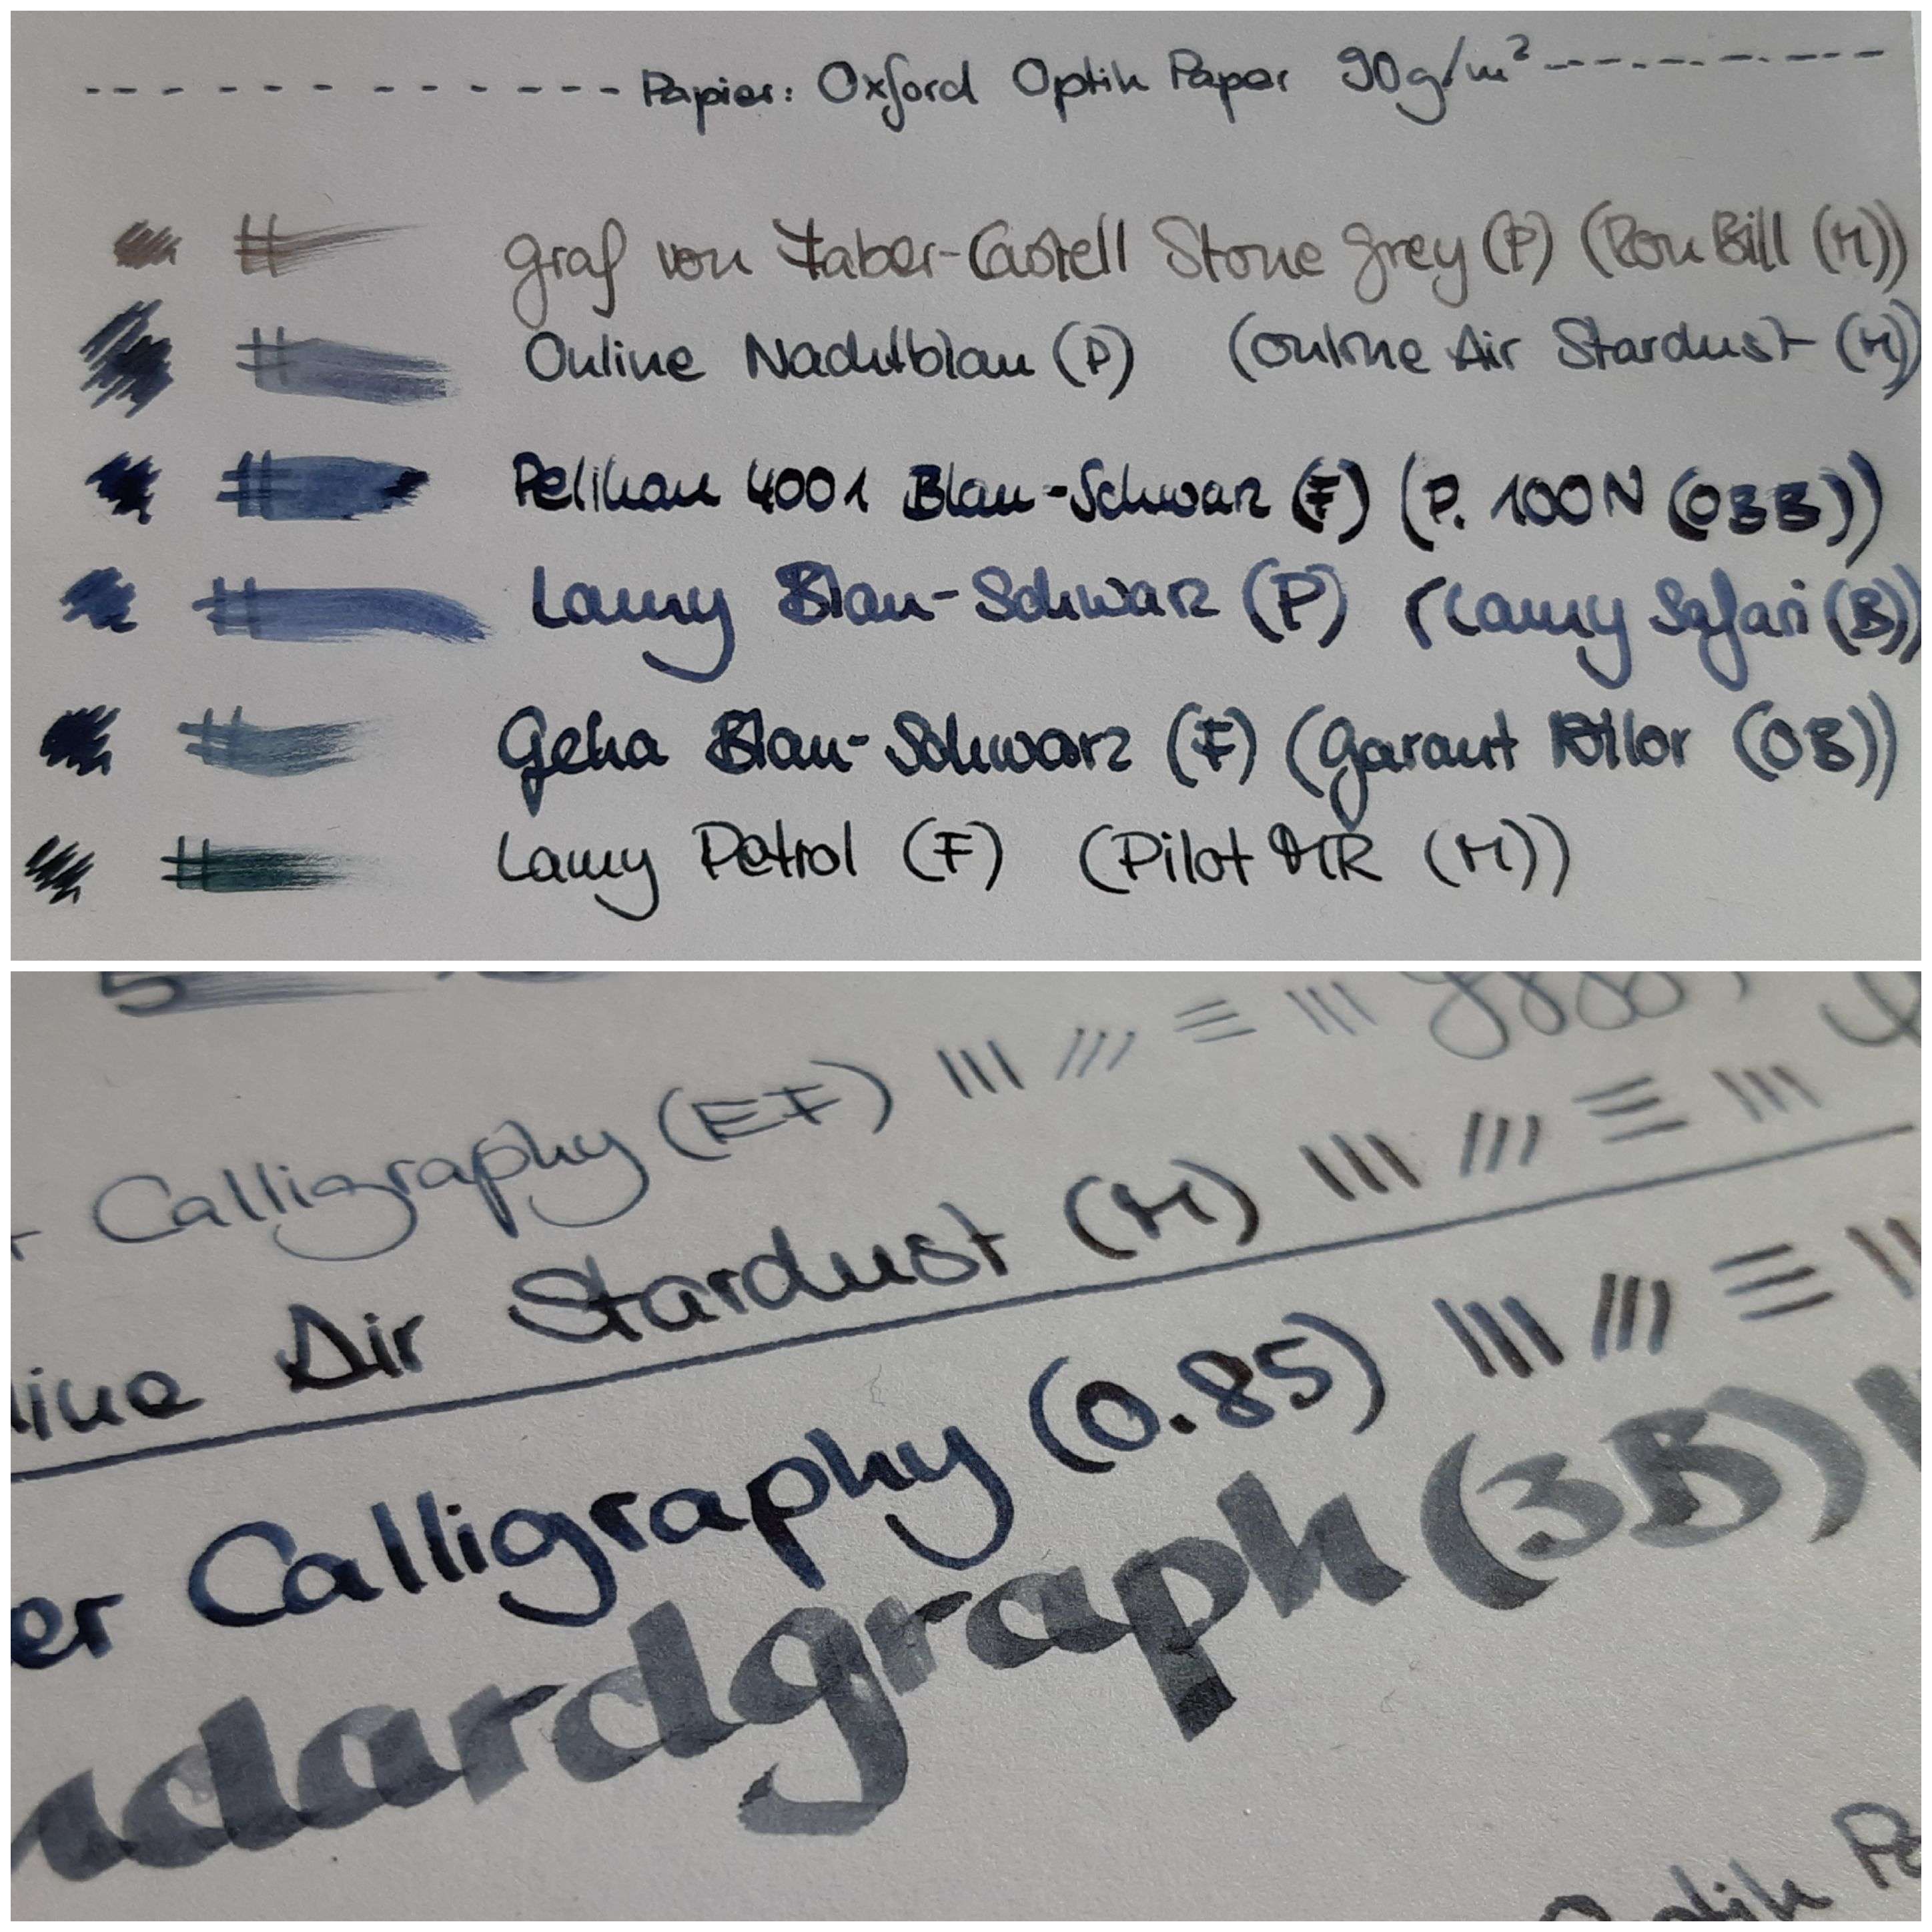 Papier: Oxford Optik Paper 90g/m²
Graf von Faber-Castell Stone Grey (P) (Bon Bill (M))
Online Nachtblau (P) (Online Air Stardust (M)
Pelikan 4001 Blau-Schwarz (F) (P. 100N (OBB))
Lamy Blau-Schwarz (P) (Lamy Safari (B))
Geha Blau-Schwarz (F) (Garant (OB))
Lamy Petrol (F) (Pilot MR (M))
5
Calligraphy (EF)
line Air Stardust (M)
er Calligraphy (0.85)
ndardgraph (3B)
Optik Pa